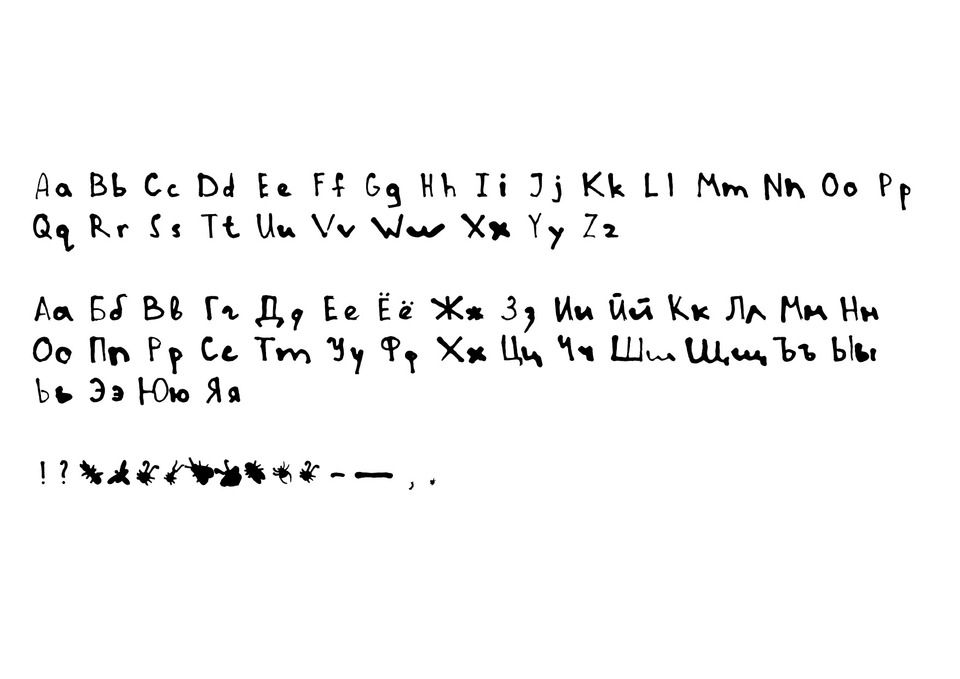 Aa Bb Cc Dd Ee Ff Gg Hh Ii Jj Kk Ll Mm Nn Oo Pp
Qq Rr Ss Tt Uu Vv Ww Xx Yy Zz
Аа Бб Вв Гг Дд Ее Ёё Жж Зз Ии Йй Кк Лл Мм Нн
Оо Пп Рр Сс Тт Уу Фф Хх Цц Чч Шш Щщ Ъъ Ыы
Ьь Ээ Юю Яя
! ? - — , .